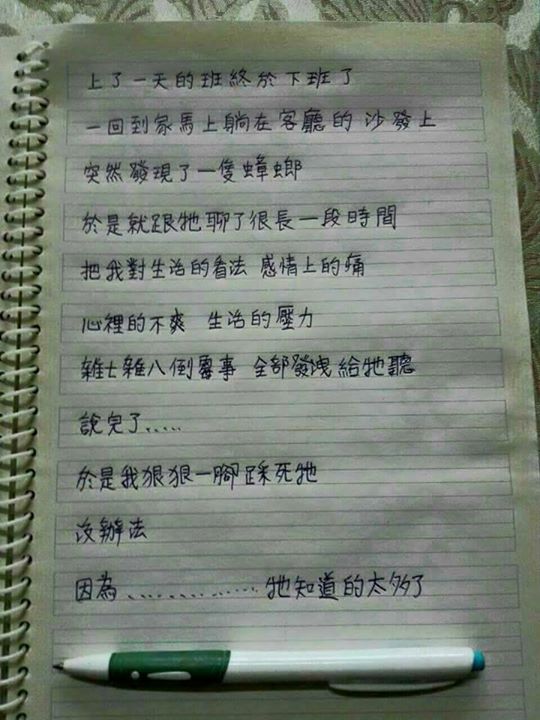 上了一天的班終於下班了
一回到家馬上躺在客廳的 沙發上
突然發現了一隻蟑螂
於是就跟牠聊了很長一段時間
把我對生活的看法 感情上的痛
心裡的不爽 生活的壓力
雜七雜八倒霉事 全部發洩給牠聽
說完了.....
於是我狠狠一腳踩死牠
沒辦法
因為..............牠知道的太多了